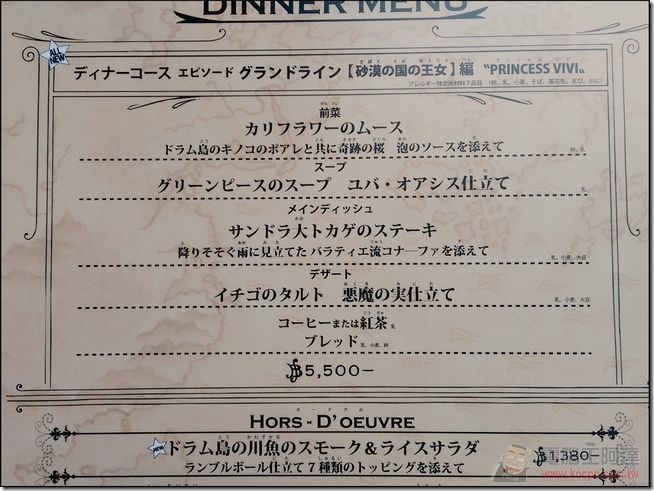 DINNER MENU
ALL NEW
ディナーコース エピソード グランドライン【砂漠の国の王女】編 "PRINCESS VIVI"
アレルギー特定原材料7品目 (卵、乳、小麦、そば、落花生、えび、かに)
前菜
カリフラワーのムース
ドラム島のキノコのポアレと共に奇跡の桜 泡のソースを添えて 卵、乳
スープ
グリーンピースのスープ ユバ・オアシス仕立て 乳
メインディッシュ
サンドラ大トカゲのステーキ
降りそそぐ雨に見立てた バラティエ流コナーファを添えて 乳、小麦、大豆
デザート
イチゴのタルト 悪魔の実仕立て 乳、小麦、大豆
コーヒーまたは紅茶 乳
ブレッド 乳、小麦、卵
5,500-
オードブル
HORS-D'OEUVRE
NEW ドラム島の川魚のスモーク&ライスサラダ 1,380
ランブルボール仕立て7種類のトッピングを添えて
電腦王阿達
http://www.kocpc.com.tw